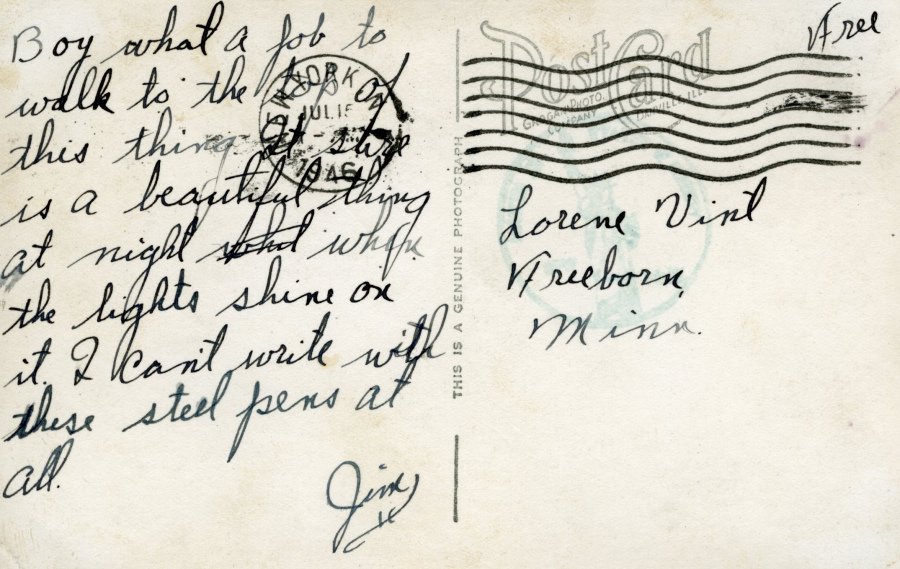 Boy what a job to
walk to the top of
this thing. It sure
is a beautiful thing
at night when
the lights shine on
it. I can't write with
these steel pens at
all.
Jim
NEW YORK
JUL 15
1946
THIS IS A GENUINE PHOTOGRAPH
Free
Post Card
GROGAN PHOTO.
COMPANY
DANVILLE, ILL.
Lorene Vint
Freeborn,
Minn.